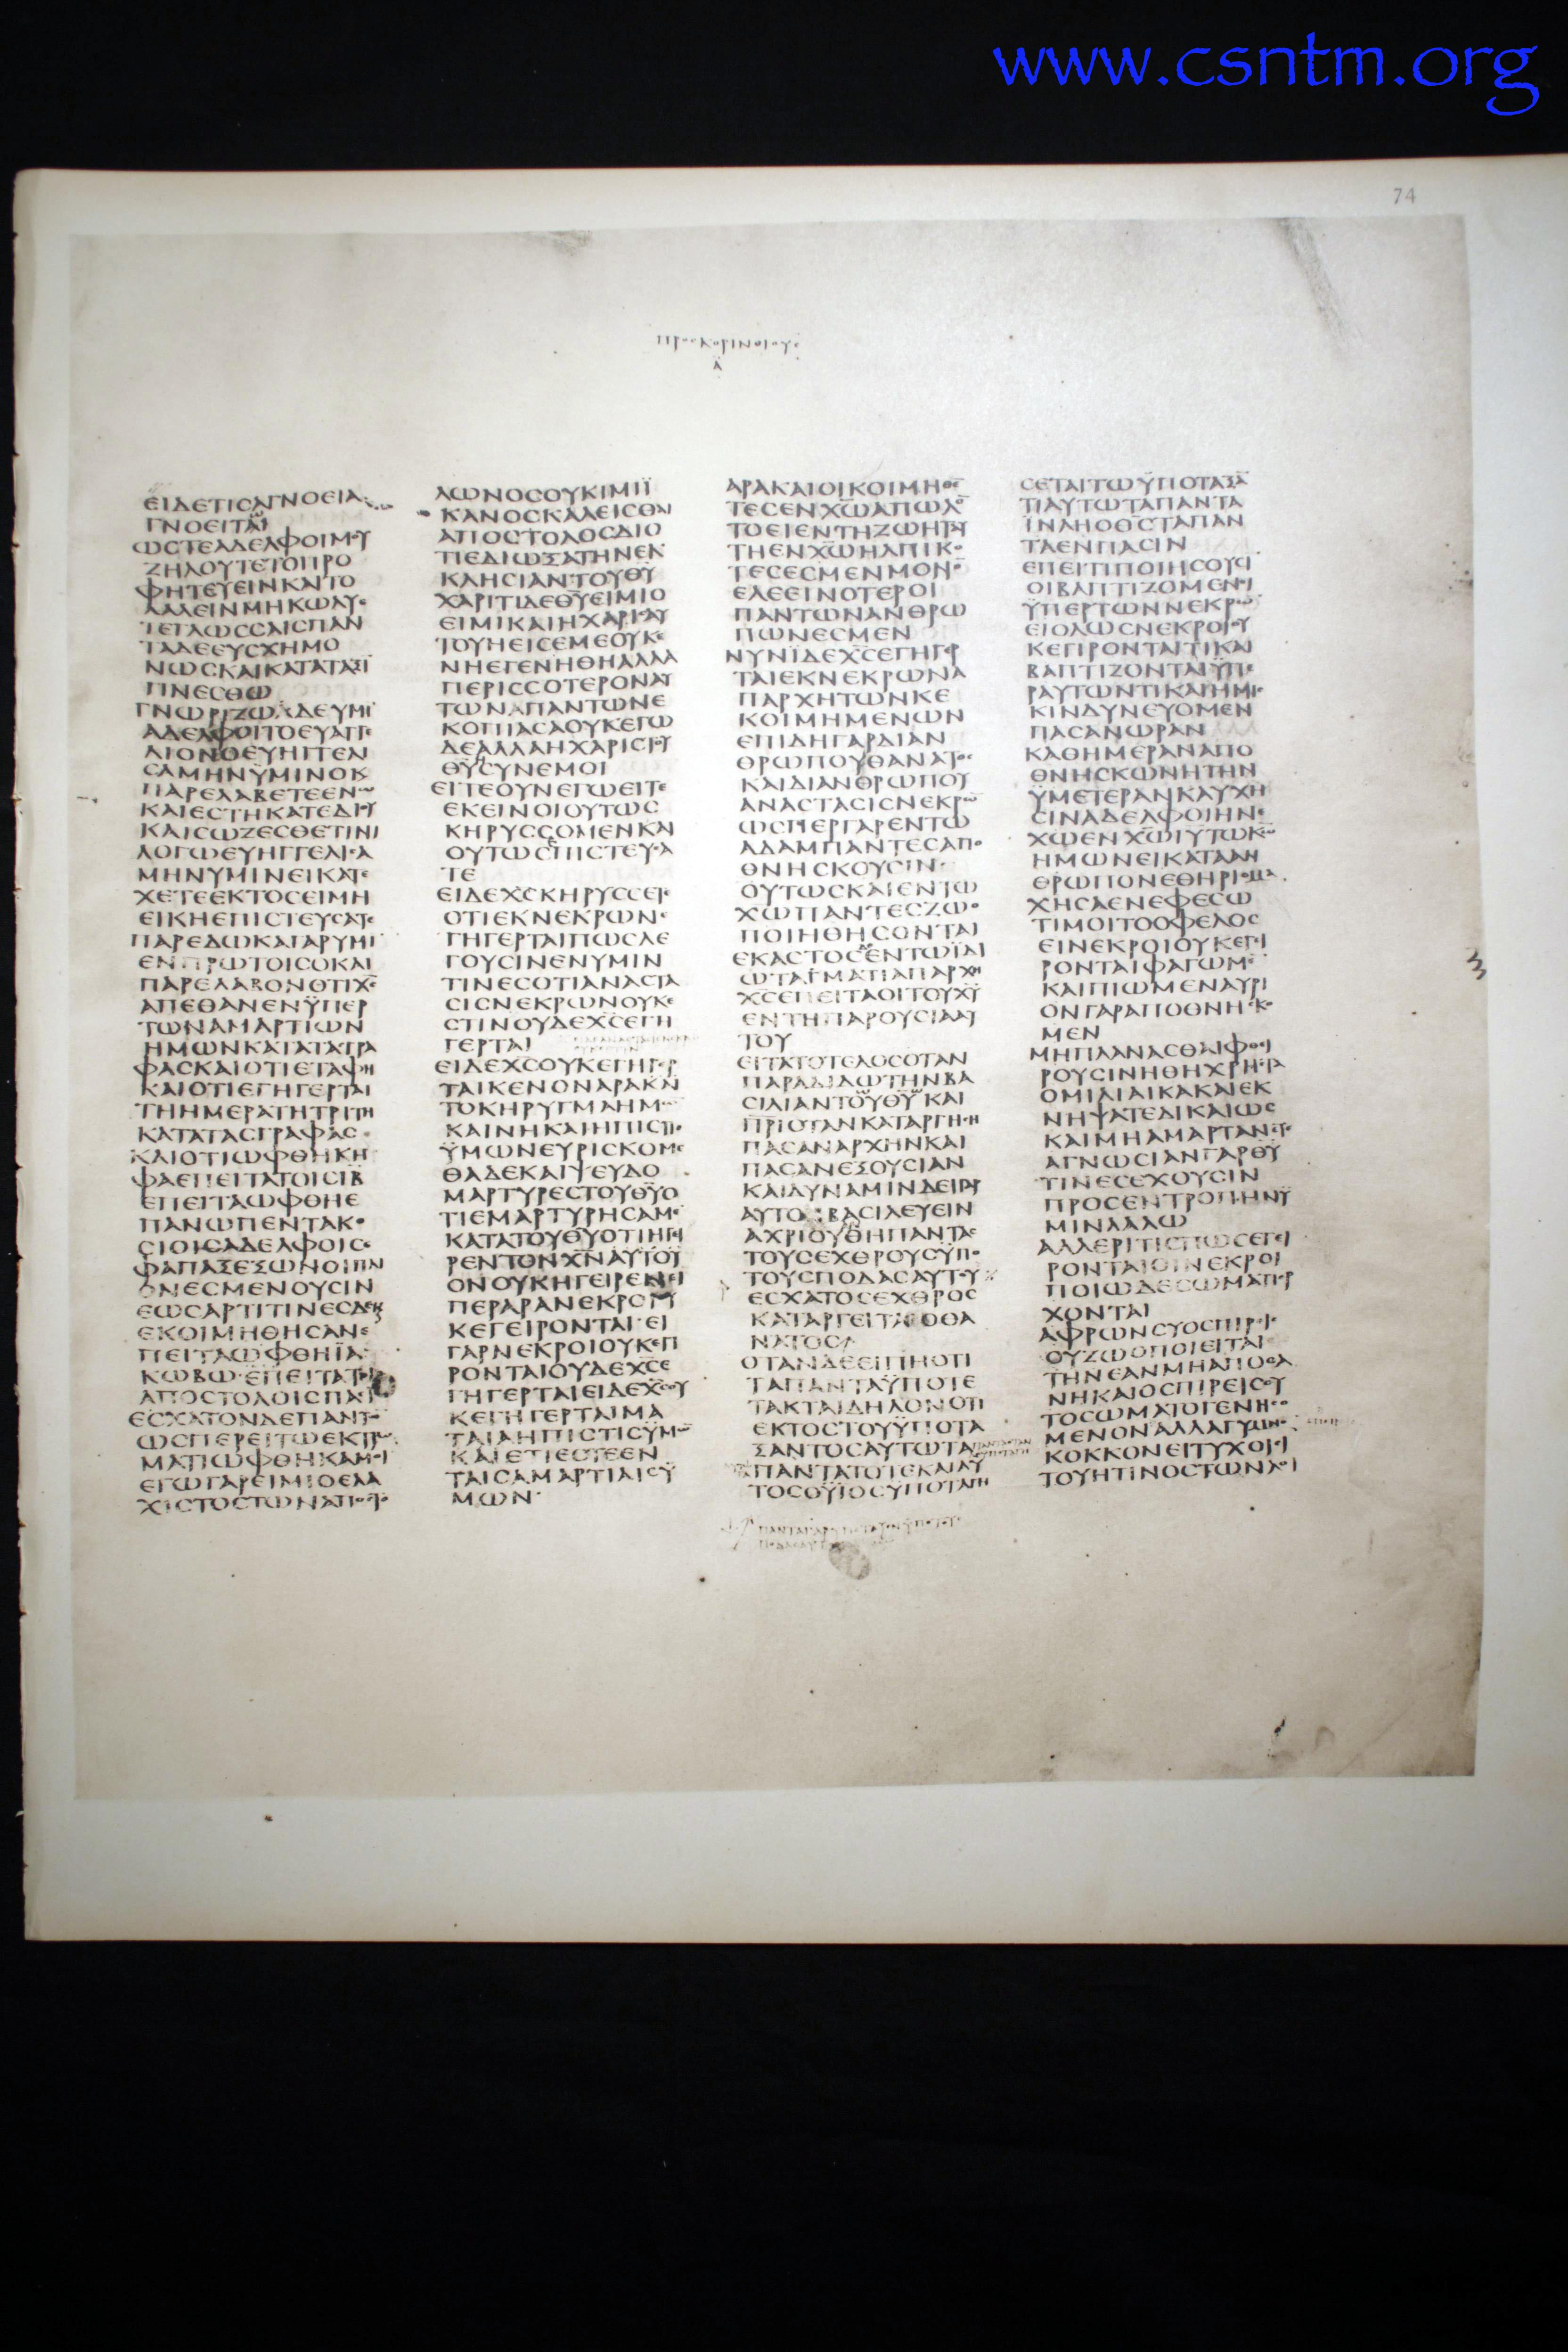 www.csntm.org
74
ΠΡΟΣ ΚΟΡΙΝΘΙΟΥΣ
Α
ΕΙΔΕΤΙCΑΓΝΟΕΙΑ
ΓΝΟΕΙΤΑΙ
ΩCΤΕΑΔΕΛΦΟΙΜΟΥ
ΖΗΛΟΥΤΕΤΟΠΡΟ
ΦΗΤΕΥΕΙΝΚΑΙΤΟ
ΛΑΛΕΙΝΜΗΚΩΛΥΕ
ΤΕΓΛΩCCΑΙCΠΑΝ
ΤΑΔΕΕΥCΧΗΜΟ
ΝΩCΚΑΙΚΑΤΑΤΑΞΙ
ΓΙΝΕCΘΩ
ΓΝΩΡΙΖΩΔΕΥΜΙ
ΑΔΕΛΦΟΙΤΟΕΥΑΓΓΕ
ΛΙΟΝΟΕΥΗΓΓΕΛΙ
CΑΜΗΝΫΜΙΝΟΚ
ΠΑΡΕΛΑΒΕΤΕΕΝΩ
ΚΑΙΕCΤΗΚΑΤΕΔΙΟΥ
ΚΑΙCΩΖΕCΘΕΤΙΝΙ
ΛΟΓΩΕΥΗΓΓΕΛΙCΑ
ΜΗΝΥΜΙΝΕΙΚΑΤΕ
ΧΕΤΕΕΚΤΟCΕΙΜΗ
ΕΙΚΗΕΠΙCΤΕΥCΑΤΕ
ΠΑΡΕΔΩΚΑΓΑΡΥΜΙ
ΕΝΠΡΩΤΟΙCΟΚΑΙ
ΠΑΡΕΛΑΒΟΝΟΤΙΧC
ΑΠΕΘΑΝΕΝΫΠΕΡ
ΤΩΝΑΜΑΡΤΙΩΝ
ΗΜΩΝΚΑΤΑΤΑΓΡΑ
ΦΑCΚΑΙΟΤΙΕΤΑΦΗ
ΚΑΙΟΤΙΕΓΗΓΕΡΤΑΙ
ΤΗΗΜΕΡΑΤΗΤΡΙΤΗ
ΚΑΤΑΤΑCΓΡΑΦΑC
ΚΑΙΟΤΙΩΦΘΗΚΗ
ΦΑΕΠΕΙΤΑΤΟΙCΙΒ
ΕΠΕΙΤΑΩΦΘΗΕ
ΠΑΝΩΠΕΝΤΑΚΟ
CΙΟΙCΑΔΕΛΦΟΙC
ΦΑΠΑΞΕΞΩΝΟΙΠΛΙ
ΟΝΕCΜΕΝΟΥCΙΝ
ΕΩCΑΡΤΙΤΙΝΕCΔΕ
ΕΚΟΙΜΗΘΗCΑΝΕ
ΠΕΙΤΑΩΦΘΗΪΑ
ΚΩΒΩΕΠΕΙΤΑΤΟΙC
ΑΠΟCΤΟΛΟΙCΠΑCΙ
ΕCΧΑΤΟΝΔΕΠΑΝΤΩ
ΩCΠΕΡΕΙΤΩΕΚΤΡΩ
ΜΑΤΙΩΦΘΗΚΑΜΟΙ
ΕΓΩΓΑΡΕΙΜΙΟΕΛΑ
ΧΙCΤΟCΤΩΝΑΠΟCΤΟ
ΛΩΝΟCΟΥΚΙΜΙΪ
ΚΑΝΟCΚΑΛΕΙCΘΑΙ
ΑΠΟCΤΟΛΟCΔΙΟ
ΤΙΕΔΙΩΞΑΤΗΝΕΚ
ΚΛΗCΙΑΝΤΟΥΘΥ
ΧΑΡΙΤΙΔΕΘΥΕΙΜΙΟ
ΕΙΜΙΚΑΙΗΧΑΡΙCΑΥ
ΤΟΥΗΕΙCΕΜΕΟΥΚΕ
ΝΗΕΓΕΝΗΘΗΑΛΛΑ
ΠΕΡΙCCΟΤΕΡΟΝΑΥ
ΤΩΝΑΠΑΝΤΩΝΕ
ΚΟΠΙΑCΑΟΥΚΕΓΩ
ΔΕΑΛΛΑΗΧΑΡΙCΤΟΥ
ΘΥCΥΝΕΜΟΙ
ΕΙΤΕΟΥΝΕΓΩΕΙΤΕ
ΕΚΕΙΝΟΙΟΥΤΩC
ΚΗΡΥCCΟΜΕΝΚΑΙ
ΟΥΤΩCΕΠΙCΤΕΥCΑ
ΤΕ
ΕΙΔΕΧCΚΗΡΥCCΕΤΕ
ΟΤΙΕΚΝΕΚΡΩΝΕ
ΓΗΓΕΡΤΑΙΠΩCΛΕ
ΓΟΥCΙΝΕΝΥΜΙΝ
ΤΙΝΕCΟΤΙΑΝΑCΤΑ
CΙCΝΕΚΡΩΝΟΥΚΕ
CΤΙΝΟΥΔΕΧCΕΓΗ
ΓΕΡΤΑΙ
ΕΙΔΕΧCΟΥΚΕΓΗΓΕΡ
ΤΑΙΚΕΝΟΝΑΡΑΚΑΙ
ΤΟΚΗΡΥΓΜΑΗΜΩ
ΚΑΙΝΗΚΑΙΗΠΙCΤΙC
ΫΜΩΝΕΥΡΙCΚΟΜΕ
ΘΑΔΕΚΑΙΨΕΥΔΟ
ΜΑΡΤΥΡΕCΤΟΥΘΥΟ
ΤΙΕΜΑΡΤΥΡΗCΑΜΕ
ΚΑΤΑΤΟΥΘΥΟΤΙΗΓΙ
ΡΕΝΤΟΝΧΝΑΥΤΟΥ
ΟΝΟΥΚΗΓΕΙΡΕΝΕΙ
ΠΕΡΑΡΑΝΕΚΡΟΙΟΥ
ΚΕΓΕΙΡΟΝΤΑΙΕΙ
ΓΑΡΝΕΚΡΟΙΟΥΚΕΓΙ
ΡΟΝΤΑΙΟΥΔΕΧCΕ
ΓΗΓΕΡΤΑΙΕΙΔΕΧCΟΥ
ΚΕΓΗΓΕΡΤΑΙΜΑ
ΤΑΙΑΗΠΙCΤΙCΫΜΩ
ΚΑΙΕΤΙΕCΤΕΕΝ
ΤΑΙCΑΜΑΡΤΙΑΙCΫ
ΜΩΝ
ΑΡΑΚΑΙΟΙΚΟΙΜΗΘΕ
ΤΕCΕΝΧΩΑΠΩΛΟ
ΤΟΕΙΕΝΤΗΖΩΗΤΑΥ
ΤΗΕΝΧΩΗΛΠΙΚΟ
ΤΕCΕCΜΕΝΜΟΝΟ
ΕΛΕΕΙΝΟΤΕΡΟΙ
ΠΑΝΤΩΝΑΝΘΡΩ
ΠΩΝΕCΜΕΝ
ΝΥΝΪΔΕΧCΕΓΗΓΕΡ
ΤΑΙΕΚΝΕΚΡΩΝΑ
ΠΑΡΧΗΤΩΝΚΕ
ΚΟΙΜΗΜΕΝΩΝ
ΕΠΙΔΗΓΑΡΔΙΑΝ
ΘΡΩΠΟΥΘΑΝΑΤΟC
ΚΑΙΔΙΑΝΘΡΩΠΟΥ
ΑΝΑCΤΑCΙCΝΕΚΡΩ
ΩCΠΕΡΓΑΡΕΝΤΩ
ΑΔΑΜΠΑΝΤΕCΑΠΟ
ΘΝΗCΚΟΥCΙΝ
ΟΥΤΩCΚΑΙΕΝΤΩ
ΧΩΠΑΝΤΕCΖΩΟ
ΠΟΙΗΘΗCΟΝΤΑΙ
ΕΚΑCΤΟCΔΕΕΝΤΩΪΔΙ
ΩΤΑΓΜΑΤΙΑΠΑΡΧΗ
ΧCΕΠΕΙΤΑΟΙΤΟΥΧΥ
ΕΝΤΗΠΑΡΟΥCΙΑΑΥ
ΤΟΥ
ΕΙΤΑΤΟΤΕΛΟCΟΤΑΝ
ΠΑΡΑΔΙΔΩΤΗΝΒΑ
CΙΛΙΑΝΤΟΥΘΥΚΑΙ
ΠΡΙΟΤΑΝΚΑΤΑΡΓΗCΗ
ΠΑCΑΝΑΡΧΗΝΚΑΙ
ΠΑCΑΝΕΞΟΥCΙΑΝ
ΚΑΙΔΥΝΑΜΙΝΔΕΙΓΑΡ
ΑΥΤΟΝΒΑCΙΛΕΥΕΙΝ
ΑΧΡΙΟΥΘΗΠΑΝΤΑC
ΤΟΥCΕΧΘΡΟΥCΫΠΟ
ΤΟΥCΠΟΔΑCΑΥΤΟΥ
ΕCΧΑΤΟCΕΧΘΡΟC
ΚΑΤΑΡΓΕΙΤΑΙΟΘΑ
ΝΑΤΟC
ΟΤΑΝΔΕΕΙΠΗΟΤΙ
ΤΑΠΑΝΤΑΫΠΟΤΕ
ΤΑΚΤΑΙΔΗΛΟΝΟΤΙ
ΕΚΤΟCΤΟΥΫΠΟΤΑ
ΞΑΝΤΟCΑΥΤΩΤΑ
ΠΑΝΤΑΤΟΤΕΚΑΙΑΥ
ΤΟCΟΫΙΟCΥΠΟΤΑΓΗ
CΕΤΑΙΤΩΫΠΟΤΑΞΑ
ΤΙΑΥΤΩΤΑΠΑΝΤΑ
ΪΝΑΗΟΘCΤΑΠΑΝ
ΤΑΕΝΠΑCΙΝ
ΕΠΕΙΤΙΠΟΙΗCΟΥCΙ
ΟΙΒΑΠΤΙΖΟΜΕΝΟΙ
ΫΠΕΡΤΩΝΝΕΚΡΩ
ΕΙΟΛΩCΝΕΚΡΟΙΟΥ
ΚΕΓΙΡΟΝΤΑΙΤΙΚΑΙ
ΒΑΠΤΙΖΟΝΤΑΙΫΠΕ
ΡΑΥΤΩΝΤΙΚΑΙΗΜΙC
ΚΙΝΔΥΝΕΥΟΜΕΝ
ΠΑCΑΝΩΡΑΝ
ΚΑΘΗΜΕΡΑΝΑΠΟ
ΘΝΗCΚΩΝΗΤΗΝ
ΫΜΕΤΕΡΑΝΚΑΥΧΗ
CΙΝΑΔΕΛΦΟΙΗΝΕ
ΧΩΕΝΧΩΙΥΤΩΚΩ
ΗΜΩΝΕΙΚΑΤΑΑΝ
ΘΡΩΠΟΝΕΘΗΡΙΟΜΑ
ΧΗCΑΕΝΕΦΕCΩ
ΤΙΜΟΙΤΟΟΦΕΛΟC
ΕΙΝΕΚΡΟΙΟΥΚΕΓΙ
ΡΟΝΤΑΙΦΑΓΩΜΕ
ΚΑΙΠΙΩΜΕΝΑΥΡΙ
ΟΝΓΑΡΑΠΟΘΝΗCΚΟ
ΜΕΝ
ΜΗΠΛΑΝΑCΘΑΙΦΘΙ
ΡΟΥCΙΝΗΘΗΧΡΗCΤΑ
ΟΜΙΛΙΑΙΚΑΚΑΙΕΚ
ΝΗΨΑΤΕΔΙΚΑΙΩC
ΚΑΙΜΗΑΜΑΡΤΑΝΕΤΕ
ΑΓΝΩCΙΑΝΓΑΡΘΥ
ΤΙΝΕCΕΧΟΥCΙΝ
ΠΡΟCΕΝΤΡΟΠΗΝΫ
ΜΙΝΛΑΛΩ
ΑΛΛΕΡΙΤΙCΠΩCΕΓΕΙ
ΡΟΝΤΑΙΟΙΝΕΚΡΟΙ
ΠΟΙΩΔΕCΩΜΑΤΙΕΡ
ΧΟΝΤΑΙ
ΑΦΡΩΝCΥΟCΠΙΡΙC
ΟΥΖΩΟΠΟΙΕΙΤΑΙ
ΤΗΝΕΑΝΜΗΑΠΟΘΑ
ΝΗΚΑΙΟCΠΙΡΕΙCΟΥ
ΤΟCΩΜΑΤΟΓΕΝΗCΟ
ΜΕΝΟΝΑΛΛΑΓΥΜΝΟ
ΚΟΚΚΟΝΕΙΤΥΧΟΙCΙ
ΤΟΥΗΤΙΝΟCΤΩΝΛΟΙ